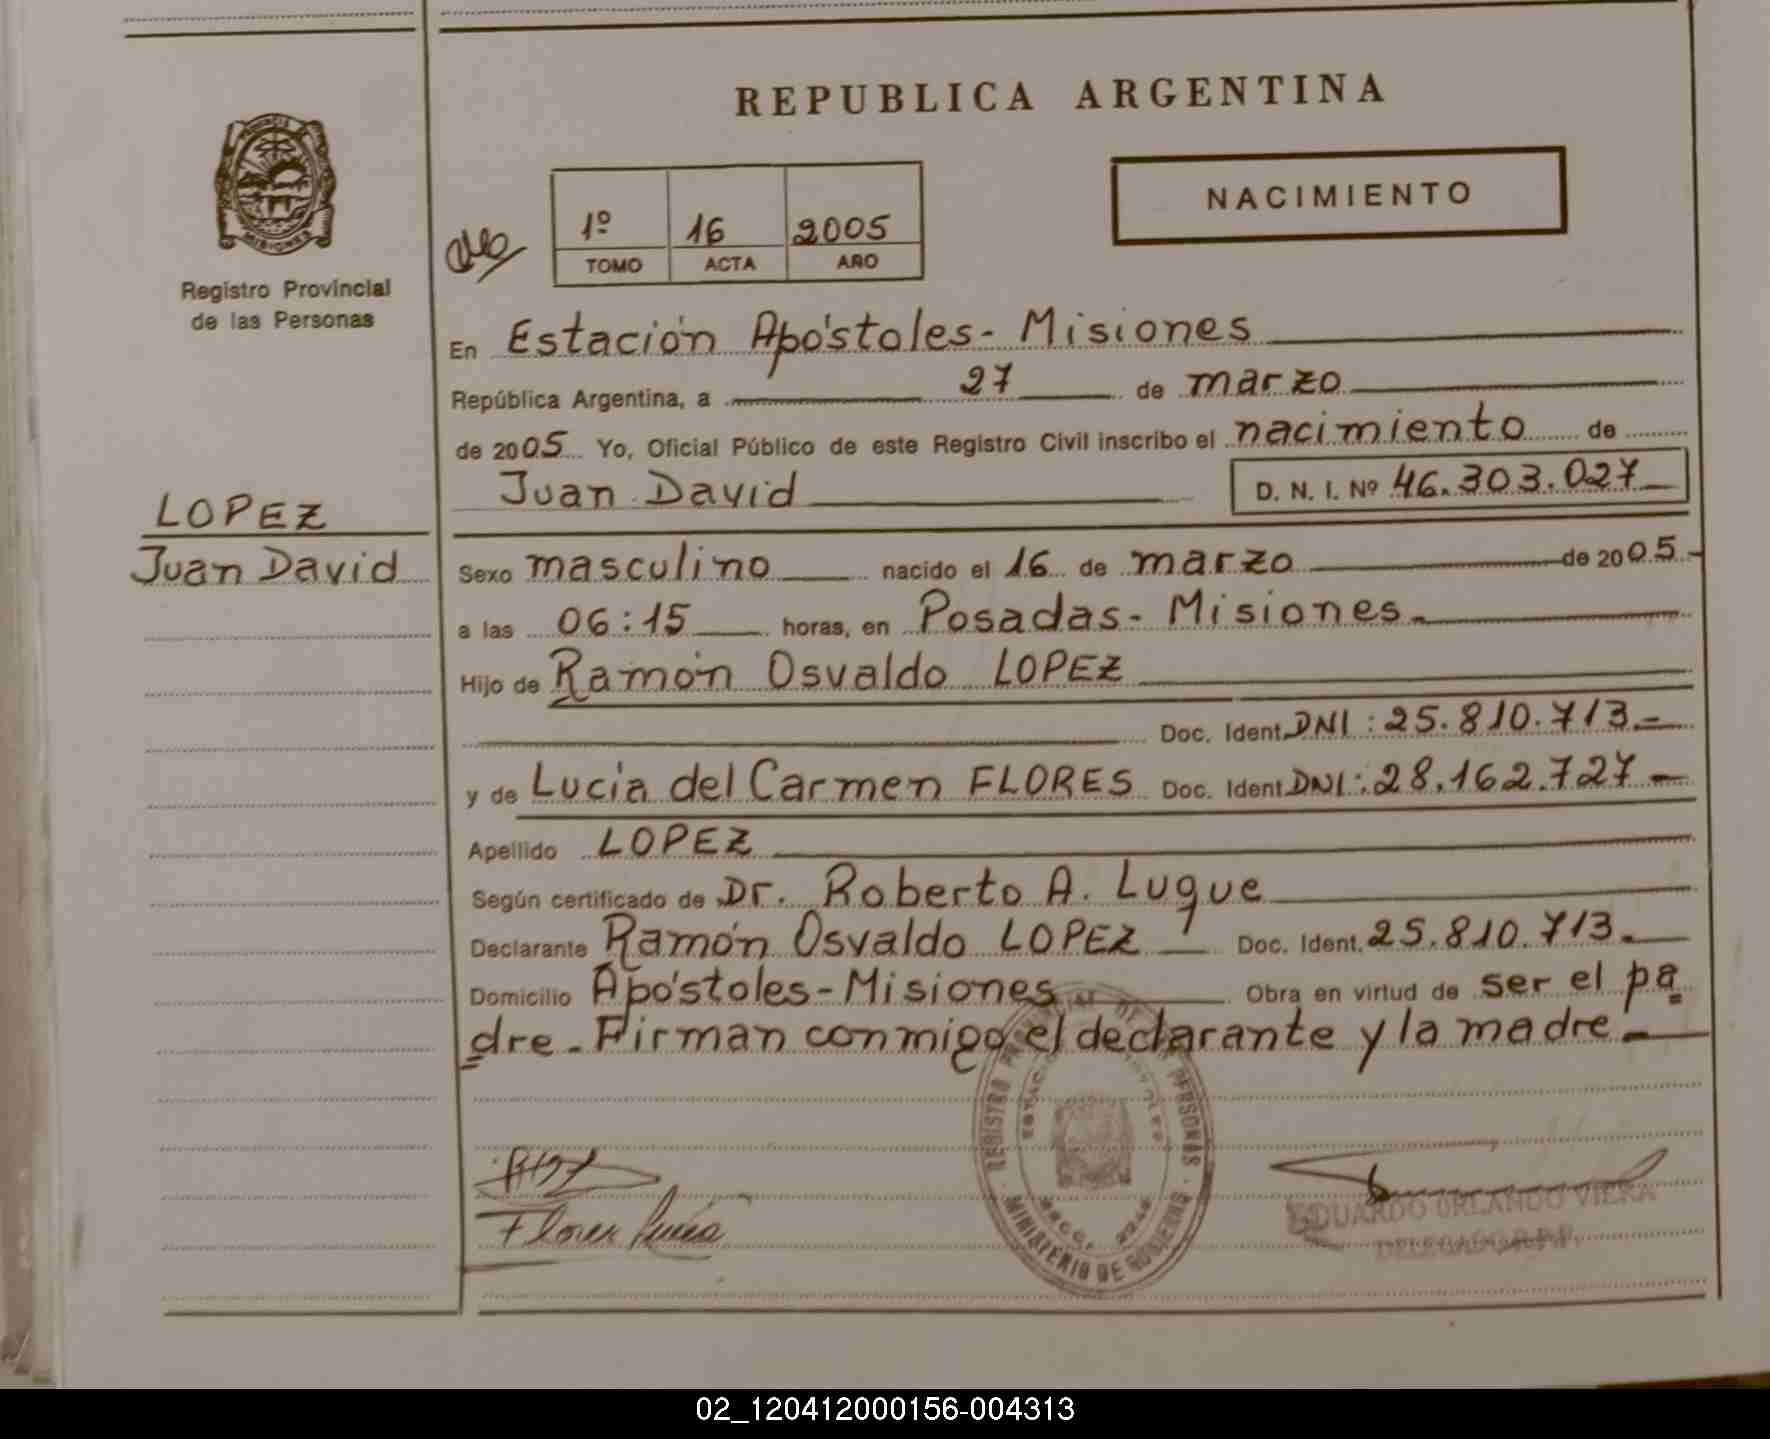 REPUBLICA ARGENTINA
NACIMIENTO
1º 16 2005
TOMO ACTA AÑO
Registro Provincial
de las Personas
En Estación Apóstoles - Misiones
República Argentina, a 27 de marzo
de 2005 Yo, Oficial Público de este Registro Civil inscribo el nacimiento de
Juan David D. N. I. Nº 46.303.027
LOPEZ
Juan David
Sexo masculino nacido el 16 de marzo de 2005 -
a las 06:15 horas, en Posadas - Misiones
Hijo de Ramón Osvaldo LOPEZ
Doc. Ident. DNI: 25.810.713.-
y de Lucia del Carmen FLORES Doc. Ident DNI: 28.162.727 -
Apellido LOPEZ
Según certificado de Dr. Roberto A. Luque
Declarante Ramón Osvaldo LOPEZ Doc. Ident. 25.810.713.
Domicilio Apóstoles - Misiones Obra en virtud de ser el pa
dre. Firman conmigo el declarante y la madre
REGISTRO PROVINCIAL DE LAS PERSONAS
MINISTERIO DE GOBIERNO
EDUARDO ORLANDO VIERA
Flores
02_120412000156-004313